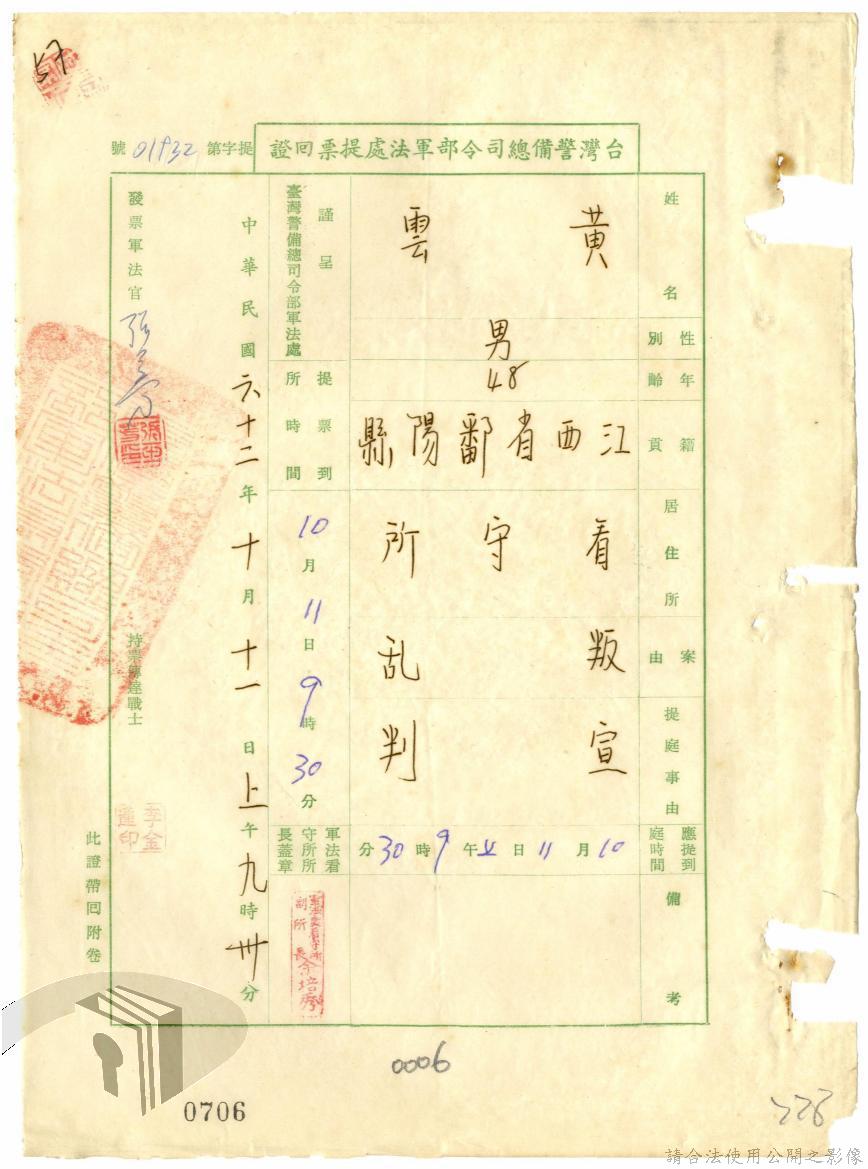 57
台灣警備總司令部軍法處提票回證
提字第01932號
姓名 黃雲
性別 男
年齡 48
籍貫 江西省鄱陽縣
居住所 看守所
案由 叛乱
提庭事由 宣判
應提到庭時間 10月11日上午9時30分
備考
謹呈
臺灣警備總司令部軍法處
提票到所時間 10月11日9時30分
軍法看守所所長蓋章
副所長余培齊
中華民國六十二年十月十一日上午九時卅分
發票軍法官
持票傳達戰士
李金蓮印
此證帶回附卷
0006
0706
226
請合法使用公開之影像